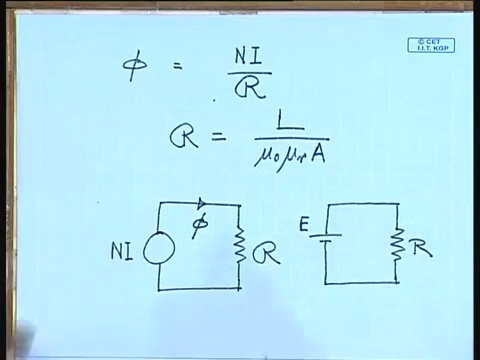 © CET
I.I.T. KGP
ϕ = NI / R
R = L / μ₀ μᵣ A
NI ϕ R E R